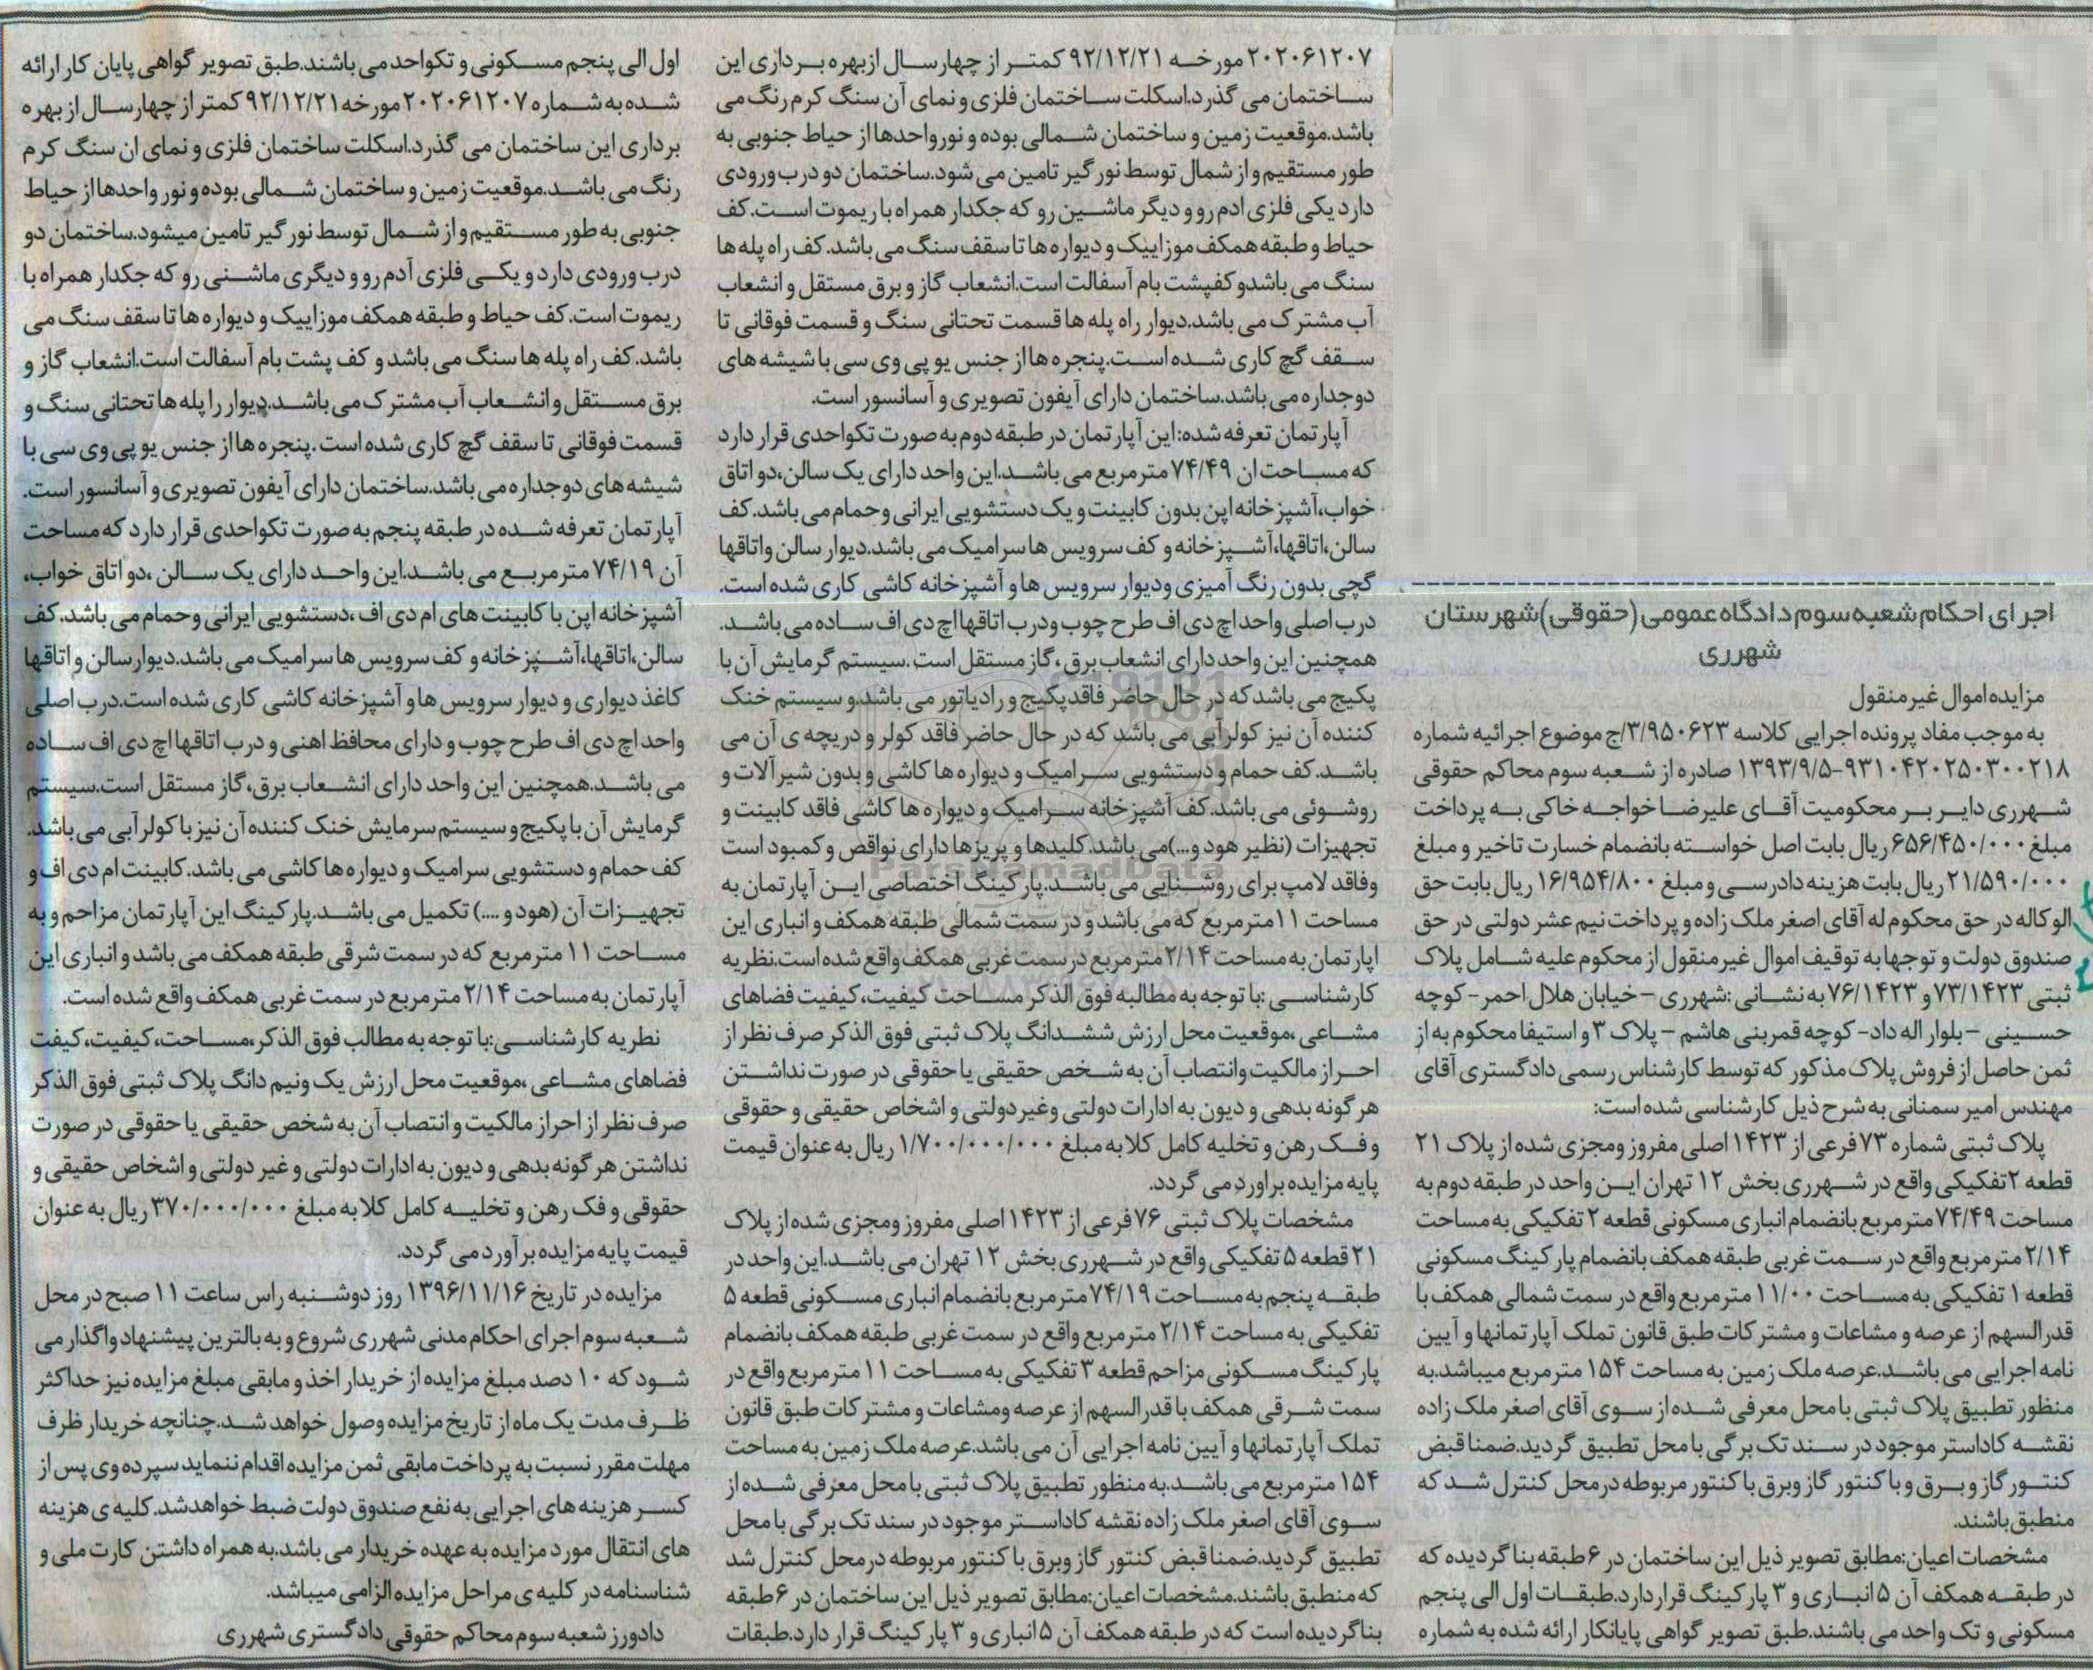 اجرای احکام شعبه سوم دادگاه عمومی (حقوقی) شهرستان
شهرری
مزایده اموال غیرمنقول
به موجب مفاد پرونده اجرایی کلاسه ۳/۹۵۰۶۲۳/ج موضوع اجرائیه شماره
۹۳۱۰۴۲۰۲۵۰۳۰۰۲۱۸-۱۳۹۳/۹/۵ صادره از شعبه سوم محاکم حقوقی
شهرری دایر بر محکومیت آقای علیرضا خواجه خاکی به پرداخت
مبلغ ۶۵۶/۴۵۰/۰۰۰ ریال بابت اصل خواسته بانضمام خسارت تاخیر و مبلغ
۲۱/۵۹۰/۰۰۰ ریال بابت هزینه دادرسی و مبلغ ۱۶/۹۵۴/۸۰۰ ریال بابت حق
الوکاله در حق محکوم له آقای اصغر ملک زاده و پرداخت نیم عشر دولتی در حق
صندوق دولت و توجها به توقیف اموال غیرمنقول از محکوم علیه شامل پلاک
ثبتی ۷۳/۱۴۲۳ و ۷۶/۱۴۲۳ به نشانی: شهرری – خیابان هلال احمر- کوچه
حسینی – بلوار اله داد- کوچه قمربنی هاشم – پلاک ۳ و استیفا محکوم به از
ثمن حاصل از فروش پلاک مذکور که توسط کارشناس رسمی دادگستری آقای
مهندس امیر سمنانی به شرح ذیل کارشناسی شده است:
پلاک ثبتی شماره ۷۳ فرعی از ۱۴۲۳ اصلی مفروز ومجزی شده از پلاک ۲۱
قطعه ۲ تفکیکی واقع در شهرری بخش ۱۲ تهران این واحد در طبقه دوم به
مساحت ۷۴/۴۹ مترمربع بانضمام انباری مسکونی قطعه ۲ تفکیکی به مساحت
۲/۱۴ مترمربع واقع در سمت غربی طبقه همکف بانضمام پارکینگ مسکونی
قطعه ۱ تفکیکی به مساحت ۱۱/۰۰ مترمربع واقع در سمت شمالی همکف با
قدرالسهم از عرصه و مشاعات و مشترکات طبق قانون تملک آپارتمانها و آیین
نامه اجرایی می باشد.عرصه ملک زمین به مساحت ۱۵۴ مترمربع میباشد.به
منظور تطبیق پلاک ثبتی با محل معرفی شده از سوی آقای اصغر ملک زاده
نقشه کاداستر موجود در سند تک برگی با محل تطبیق گردید.ضمنا قبض
کنتور گاز و برق و با کنتور گاز وبرق با کنتور مربوطه درمحل کنترل شد که
منطبق باشند.
مشخصات اعیان:مطابق تصویر ذیل این ساختمان در ۶ طبقه بنا گردیده که
در طبقه همکف آن ۵ انباری و ۳ پارکینگ قرار دارد.طبقات اول الی پنجم
مسکونی و تک واحد می باشند.طبق تصویر گواهی پایانکار ارائه شده به شماره
۲۰۲۰۶۱۲۰۷ مورخه ۹۲/۱۲/۲۱ کمتر از چهارسال از بهره برداری این
ساختمان می گذرد.اسکلت ساختمان فلزی و نمای آن سنگ کرم رنگ می
باشد.موقعیت زمین و ساختمان شمالی بوده و نور واحدها از حیاط جنوبی به
طور مستقیم و از شمال توسط نور گیر تامین می شود.ساختمان دو درب ورودی
دارد یکی فلزی ادم رو و دیگر ماشین رو که جکدار همراه با ریموت است. کف
حیاط و طبقه همکف موزاییک و دیواره ها تا سقف سنگ می باشد. کف راه پله ها
سنگ می باشدو کفپشت بام آسفالت است.انشعاب گاز و برق مستقل و انشعاب
آب مشترک می باشد.دیوار راه پله ها قسمت تحتانی سنگ و قسمت فوقانی تا
سقف گچ کاری شده است.پنجره ها از جنس یو پی وی سی با شیشه های
دوجداره می باشد.ساختمان دارای آیفون تصویری و آسانسور است.
آپارتمان تعرفه شده:این آپارتمان در طبقه دوم به صورت تکواحدی قرار دارد
که مساحت ان ۷۴/۴۹ مترمربع می باشد.این واحد دارای یک سالن،دو اتاق
خواب،آشپزخانه اپن بدون کابینت و یک دستشویی ایرانی وحمام می باشد. کف
سالن،اتاقها،آشپزخانه و کف سرویس ها سرامیک می باشد.دیوار سالن واتاقها
گچی بدون رنگ آمیزی ودیوار سرویس ها و آشپزخانه کاشی کاری شده است.
درب اصلی واحد اچ دی اف طرح چوب ودرب اتاقها اچ دی اف ساده می باشد.
همچنین این واحد دارای انشعاب برق ، گاز مستقل است .سیستم گرمایش آن با
پکیج می باشد که در حال حاضر فاقد پکیج و رادیاتور می باشد.و سیستم خنک
کننده آن نیز کولرآبی می باشد که در حال حاضر فاقد کولر و دریچه ی آن می
باشد. کف حمام و دستشویی سرامیک و دیواره ها کاشی و بدون شیرآلات و
روشوئی می باشد. کف آشپزخانه سرامیک و دیواره ها کاشی فاقد کابینت و
تجهیزات (نظیر هود و...)می باشد. کلیدها و پریزها دارای نواقص و کمبود است
وفاقد لامپ برای روشنایی می باشد.پارکینگ اختصاصی این آپارتمان به
مساحت ۱۱مترمربع که می باشد و در سمت شمالی طبقه همکف و انباری این
اپارتمان به مساحت ۲/۱۴ مترمربع در سمت غربی همکف واقع شده است.نظریه
کارشناسی :با توجه به مطالبه فوق الذکر مساحت کیفیت، کیفیت فضاهای
مشاعی ،موقعیت محل ارزش ششدانگ پلاک ثبتی فوق الذکر صرف نظر از
احراز مالکیت وانتصاب آن به شخص حقیقی یا حقوقی در صورت نداشتن
هر گونه بدهی و دیون به ادارات دولتی وغیردولتی و اشخاص حقیقی و حقوقی
و فک رهن و تخلیه کامل کلا به مبلغ ۱/۷۰۰/۰۰۰/۰۰۰ ریال به عنوان قیمت
پایه مزایده براورد می گردد.
مشخصات پلاک ثبتی ۷۶ فرعی از ۱۴۲۳ اصلی مفروز ومجزی شده از پلاک
۲۱ قطعه ۵ تفکیکی واقع در شهرری بخش ۱۲ تهران می باشد.این واحد در
طبقه پنجم به مساحت ۷۴/۱۹ مترمربع بانضمام انباری مسکونی قطعه ۵
تفکیکی به مساحت ۲/۱۴ مترمربع واقع در سمت غربی طبقه همکف بانضمام
پارکینگ مسکونی مزاحم قطعه ۳ تفکیکی به مساحت ۱۱ مترمربع واقع در
سمت شرقی همکف با قدرالسهم از عرصه ومشاعات و مشترکات طبق قانون
تملک آپارتمانها و آیین نامه اجرایی آن می باشد.عرصه ملک زمین به مساحت
۱۵۴ مترمربع می باشد.به منظور تطبیق پلاک ثبتی با محل معرفی شده از
سوی آقای اصغر ملک زاده نقشه کاداستر موجود در سند تک برگی با محل
تطبیق گردید.ضمنا قبض کنتور گاز وبرق با کنتور مربوطه درمحل کنترل شد
که منطبق باشند.مشخصات اعیان:مطابق تصویر ذیل این ساختمان در ۶ طبقه
بناگردیده است که در طبقه همکف آن ۵ انباری و ۳ پارکینگ قرار دارد.طبقات
اول الی پنجم مسکونی و تکواحد می باشند.طبق تصویر گواهی پایان کار ارائه
شده به شماره ۲۰۲۰۶۱۲۰۷ مورخه ۹۲/۱۲/۲۱ کمتر از چهارسال از بهره
برداری این ساختمان می گذرد.اسکلت ساختمان فلزی و نمای ان سنگ کرم
رنگ می باشد.موقعیت زمین و ساختمان شمالی بوده و نور واحدها از حیاط
جنوبی به طور مستقیم و از شمال توسط نور گیر تامین میشود.ساختمان دو
درب ورودی دارد و یکی فلزی آدم رو و دیگری ماشنی رو که جکدار همراه با
ریموت است. کف حیاط و طبقه همکف موزاییک و دیواره ها تا سقف سنگ می
باشد. کف راه پله ها سنگ می باشد و کف پشت بام آسفالت است.انشعاب گاز و
برق مستقل و انشعاب آب مشترک می باشد.دیوار را پله ها تحتانی سنگ و
قسمت فوقانی تا سقف گچ کاری شده است .پنجره ها از جنس یو پی وی سی با
شیشه های دوجداره می باشد.ساختمان دارای آیفون تصویری و آسانسور است.
آپارتمان تعرفه شده در طبقه پنجم به صورت تکواحدی قرار دارد که مساحت
آن ۷۴/۱۹ مترمربع می باشد.این واحد دارای یک سالن ،دو اتاق خواب،
آشپزخانه اپن با کابینت های ام دی اف ،دستشویی ایرانی وحمام می باشد. کف
سالن،اتاقها،آشپزخانه و کف سرویس ها سرامیک می باشد.دیوار سالن و اتاقها
کاغذ دیواری و دیوار سرویس ها و آشپزخانه کاشی کاری شده است.درب اصلی
واحد اچ دی اف طرح چوب و دارای محافظ اهنی و درب اتاقها اچ دی اف ساده
می باشد.همچنین این واحد دارای انشعاب برق، گاز مستقل است.سیستم
گرمایش آن با پکیج و سیستم سرمایش خنک کننده آن نیز با کولر آبی می باشد.
کف حمام و دستشویی سرامیک و دیواره ها کاشی می باشد. کابینت ام دی اف و
تجهیزات آن (هود و ....) تکمیل می باشد.پارکینگ این آپارتمان مزاحم و به
مساحت ۱۱ مترمربع که در سمت شرقی طبقه همکف می باشد و انباری این
آپارتمان به مساحت ۲/۱۴ مترمربع در سمت غربی همکف واقع شده است.
نظریه کارشناسی:با توجه به مطالب فوق الذکر،مساحت، کیفیت، کیفت
فضاهای مشاعی ،موقعیت محل ارزش یک ونیم دانگ پلاک ثبتی فوق الذکر
صرف نظر از احراز مالکیت و انتصاب آن به شخص حقیقی یا حقوقی در صورت
نداشتن هر گونه بدهی و دیون به ادارات دولتی و غیر دولتی و اشخاص حقیقی و
حقوقی و فک رهن و تخلیه کامل کلا به مبلغ ۳۷۰/۰۰۰/۰۰۰ ریال به عنوان
قیمت پایه مزایده برآورد می گردد.
مزایده در تاریخ ۱۳۹۶/۱۱/۱۶ روز دوشنبه راس ساعت ۱۱ صبح در محل
شعبه سوم اجرای احکام مدنی شهرری شروع و به بالترین پیشنهاد واگذار می
شود که ۱۰ دصد مبلغ مزایده از خریدار اخذ و مابقی مبلغ مزایده نیز حداکثر
ظرف مدت یک ماه از تاریخ مزایده وصول خواهد شد.چنانچه خریدار ظرف
مهلت مقرر نسبت به پرداخت مابقی ثمن مزایده اقدام ننماید سپرده وی پس از
کسر هزینه های اجرایی به نفع صندوق دولت ضبط خواهدشد. کلیه ی هزینه
های انتقال مورد مزایده به عهده خریدار می باشد.به همراه داشتن کارت ملی و
شناسنامه در کلیه ی مراحل مزایده الزامی میباشد.
دادورز شعبه سوم محاکم حقوقی دادگستری شهرری
ParsNamadData